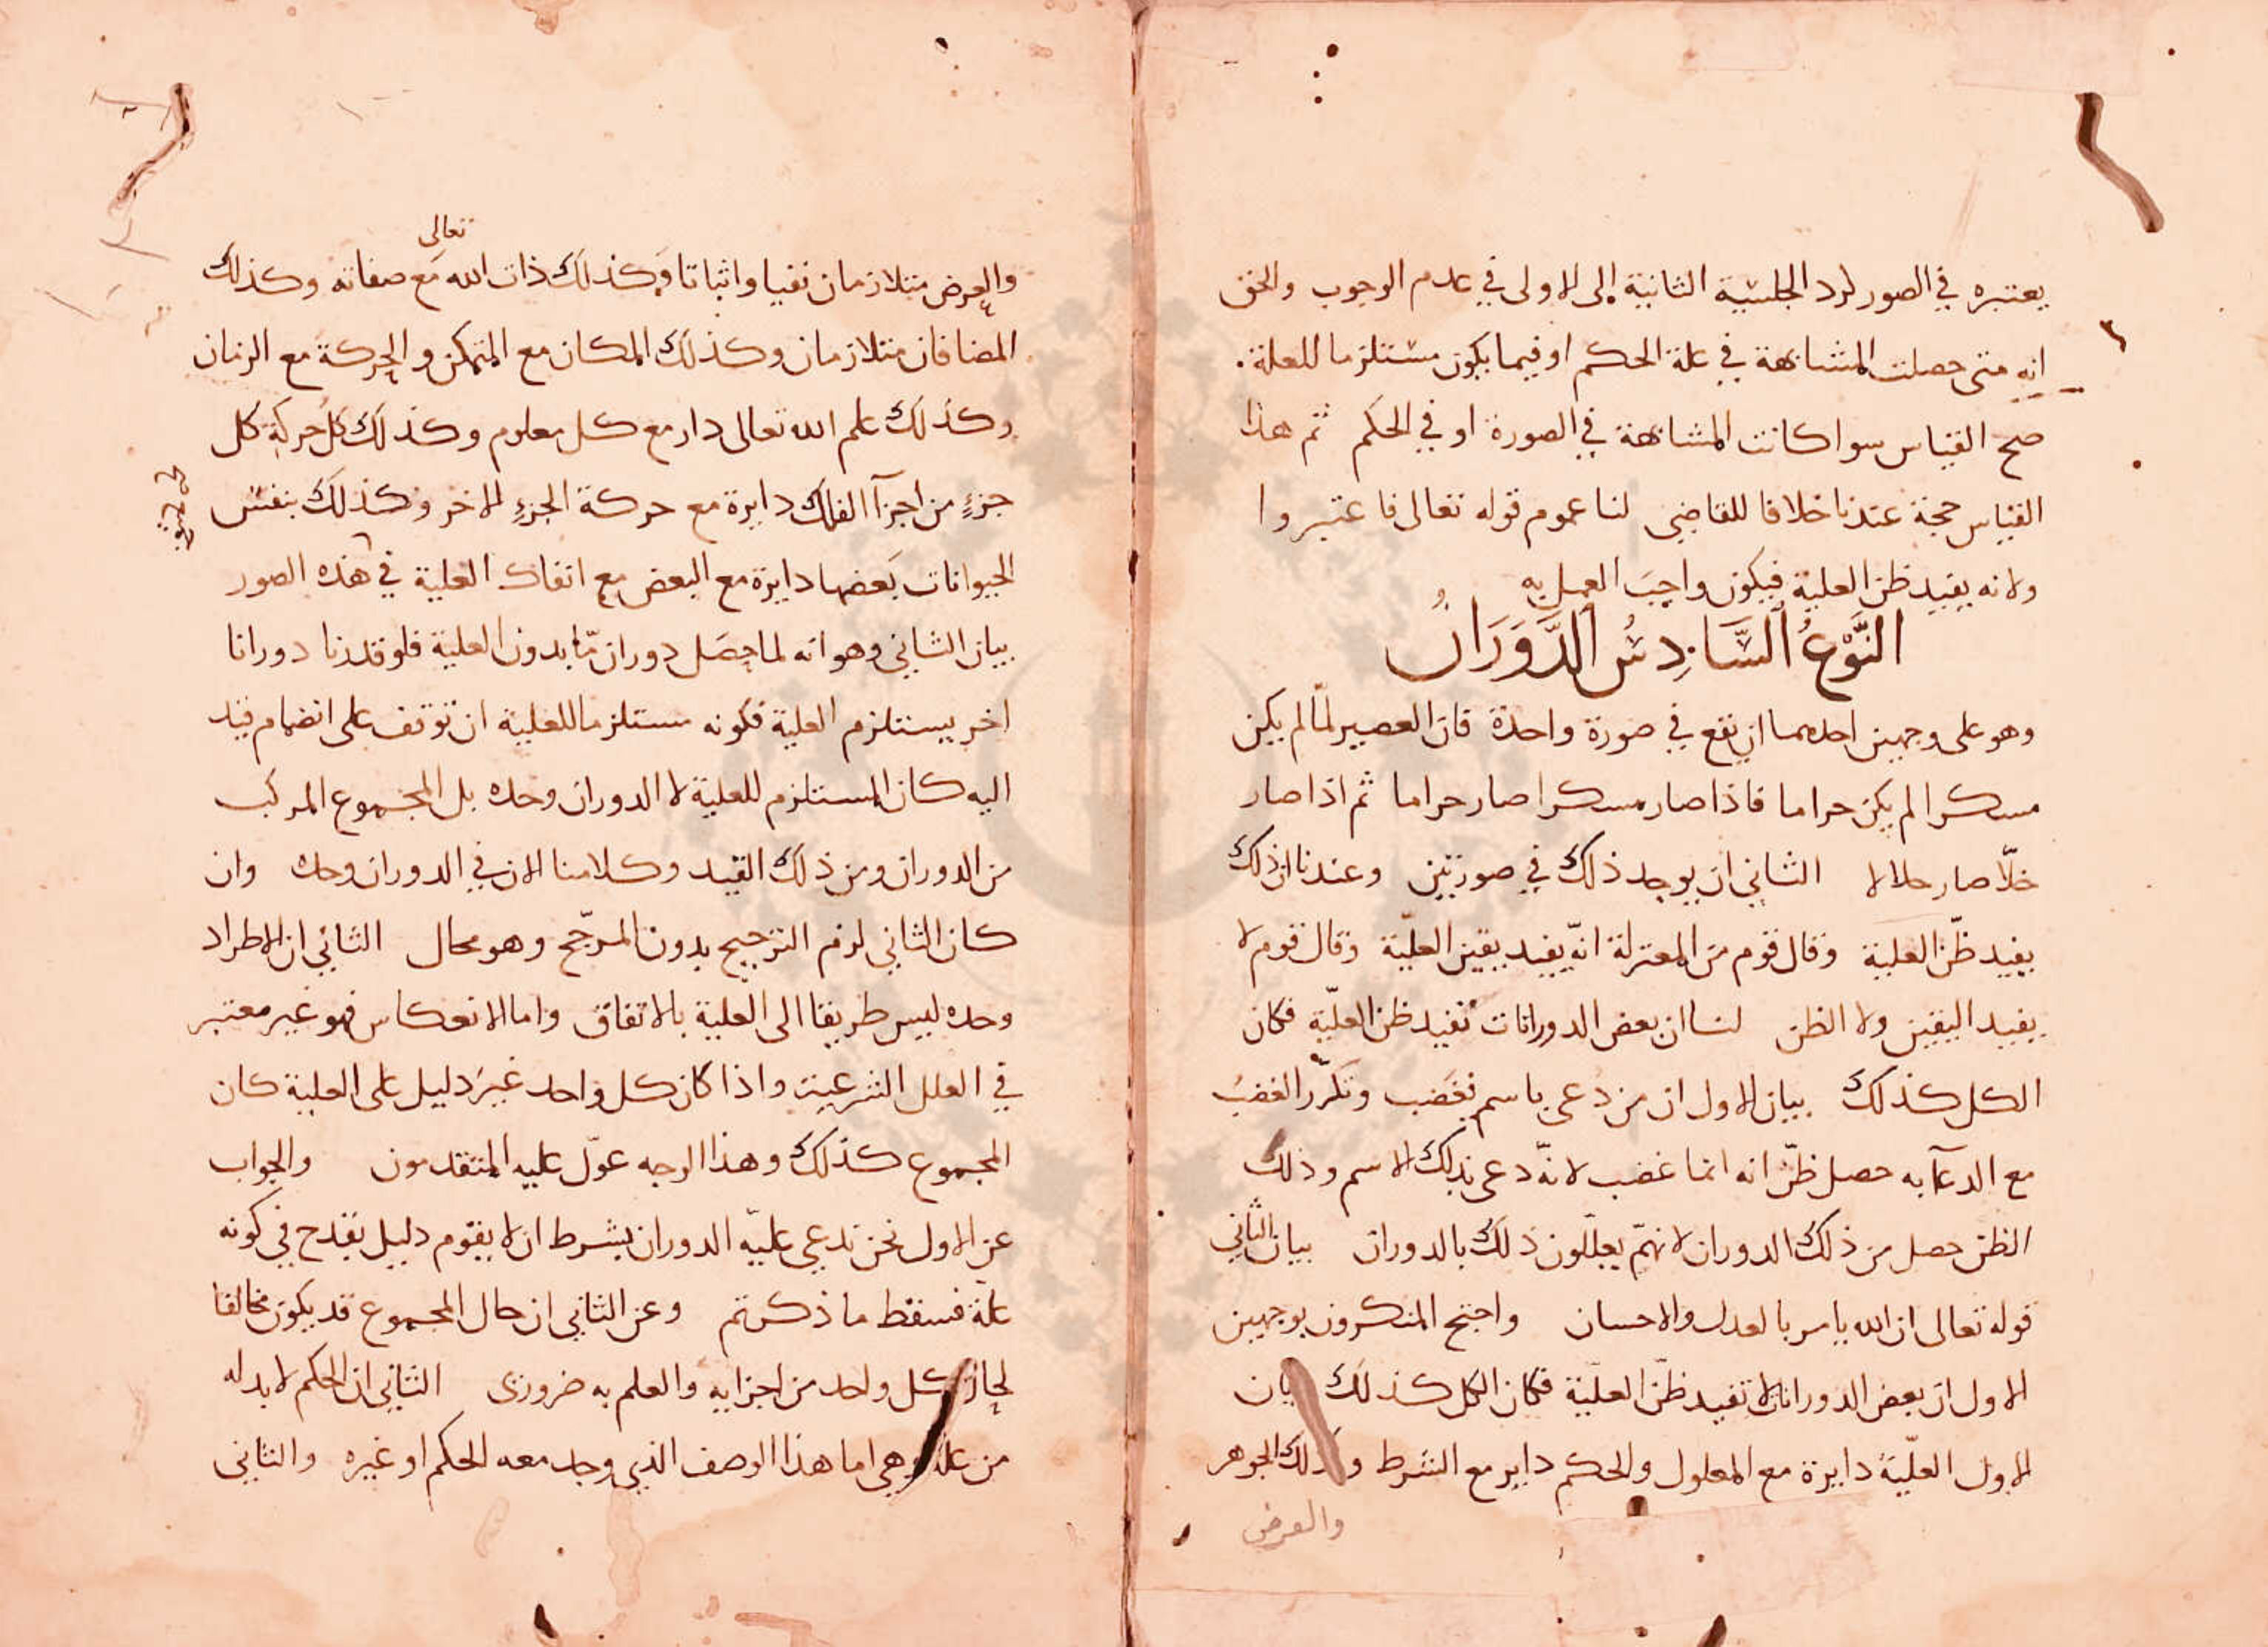 يعتبره في الصور لرد الجلسة الثانية الى الاولى في عدم الوجوب والحق
انه متى حصلت المشابهة في علة الحكم او فيما يكون مستلزما للعلة
صح القياس سوا كانت المشابهة في الصورة او في الحكم ثم هذا
القياس حجة عندنا خلافا للقاضي لنا عموم قوله تعالى فاعتبروا
ولانه يفيد ظن العلية فيكون واجب العمل به
النَّوْعُ السَّادِسُ الدَّوَرَانُ
وهو على وجهين احدهما ان يقع في صورة واحدة فان العصير لمّا لم يكن
مسكرا لم يكن حراما فاذا صار مسكرا صار حراما ثم اذا صار
خلّا صار حلالا الثاني ان يوجد ذلك في صورتين وعندنا ان ذلك
يفيد ظنّ العلية وقال قوم من المعتزلة انّه يفيد يقين العلّية وقال قوم لا
يفيد اليقين ولا الظن لنا ان بعض الدورانات تفيد ظن العلّية فكان
الكل كذلك بيان الاول ان من دعى باسم فغضب وتكرّر الغضب
مع الدعآ به حصل ظنّ انه انما غضب لانّه دعى بذلك الاسم وذلك
الظن حصل من ذلك الدوران لانهمّ يعلّلون ذلك بالدوران بيان الثاني
قوله تعالى ان الله يامر بالعدل والاحسان واحتج المنكرون بوجهين
الاول ان بعض الدورانات لا تفيد ظنّ العلّية فكان الكل كذلك بيان
الاول العلّية دايرة مع المعلول والحكم داير مع الشرط وكذلك الجوهر
والعرض
والعرض متلازمان نفيا واثباتا وكذلك ذات الله تعالى مع صفاته وكذلك
المضافان متلازمان وكذلك المكان مع المتمكن والحركة مع الزمان
وكذلك علم الله تعالى دار مع كل معلوم وكذلك كل حركة كل
جزءٍ من اجزآ الفلك دايرة مع حركة الجزءِ الاخر وكذلك بنفس
الحيوانات بعضها دايرة مع البعض مع انفاك العلية في هذه الصور
بيان الثاني وهو انه لما حصل دوران مّا بدون العلية فلو قدرنا دورانا
اخر يستلزم العلية فكونه مستلزما للعلية ان توقف على انضمام قيد
اليه كان المستلزم للعلية لا الدوران وحده بل المجموع المركب
من الدوران ومن ذلك القيد وكلامنا الان في الدوران وحده وان
كان الثاني لزم الترجيح بدون المرجّح وهو محال الثاني ان الاطراد
وحده ليس طريقا الى العلية بالاتفاق واما الانعكاس فهو غير معتبر
في العلل الشرعية واذا كان كل واحد غير دليل على العلية كان
المجموع كذلك وهذا الوجه عوّل عليه المتقدمون والجواب
عن الاول نحن ندعي عليّه الدوران بشرط ان لا يقوم دليل يقدح في كونه
علة فسقط ما ذكرتم وعن الثاني ان حال المجموع قد يكون مخالفا
لحال كل واحد من اجزايه والعلم به ضروري الثاني ان الحكم لا بد له
من علة وهي اما هذا الوصف الذي وجد معه الحكم او غيره والثاني